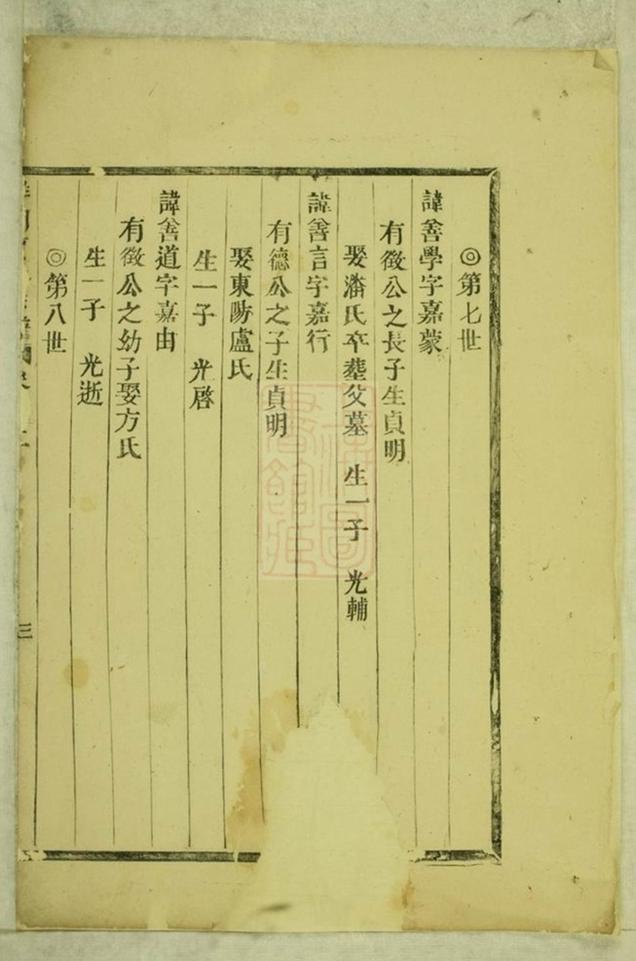 ◎第七世
諱善學字嘉蒙
有徵公之長子生貞明
娶潘氏卒塟父墓 生一子 光輔
諱善言字嘉行
有德公之子生貞明
娶東陽盧氏
生一子 光啓
諱善道字嘉由
有徵公之幼子娶方氏
生一子 光逝
◎第八世
三